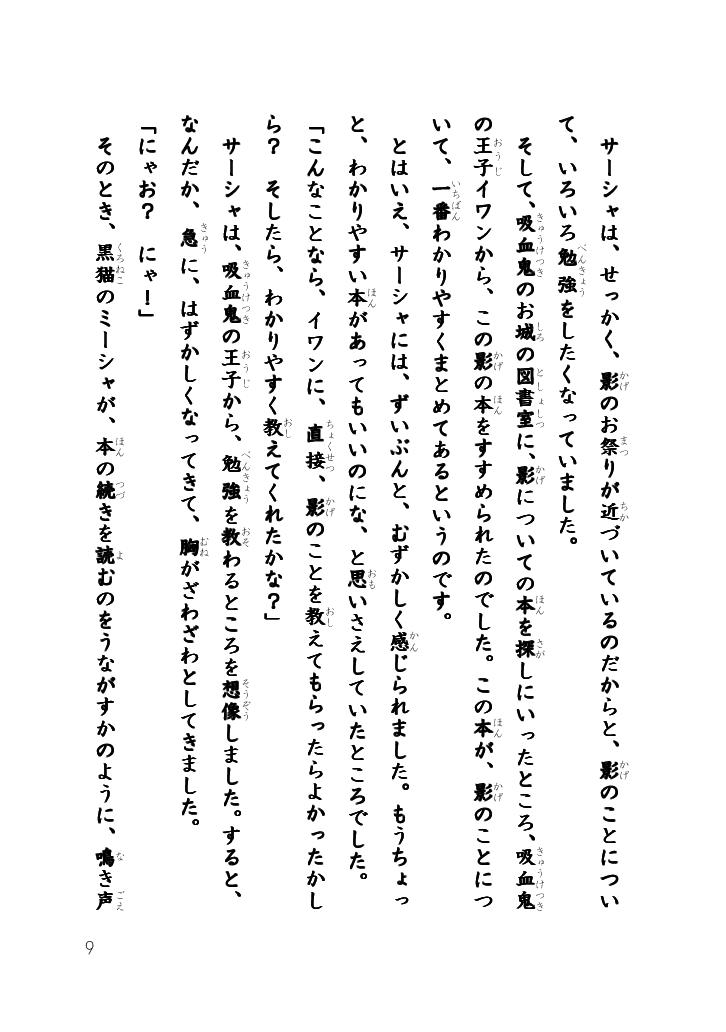 サーシャは、せっかく、影のお祭りが近づいているのだからと、影のことについ
て、いろいろ勉強をしたくなっていました。
そして、吸血鬼のお城の図書室に、影についての本を探しにいったところ、吸血鬼
の王子イワンから、この影の本をすすめられたのでした。この本が、影のことにつ
いて、一番わかりやすくまとめてあるというのです。
とはいえ、サーシャには、ずいぶんと、むずかしく感じられました。もうちょっ
と、わかりやすい本があってもいいのにな、と思いさえしていたところでした。
「こんなことなら、イワンに、直接、影のことを教えてもらったらよかったかし
ら？　そしたら、わかりやすく教えてくれたかな？」
サーシャは、吸血鬼の王子から、勉強を教わるところを想像しました。すると、
なんだか、急に、はずかしくなってきて、胸がざわざわとしてきました。
「にゃお？　にゃー！」
そのとき、黒猫のミーシャが、本の続きを読むのをうながすかのように、鳴き声
9